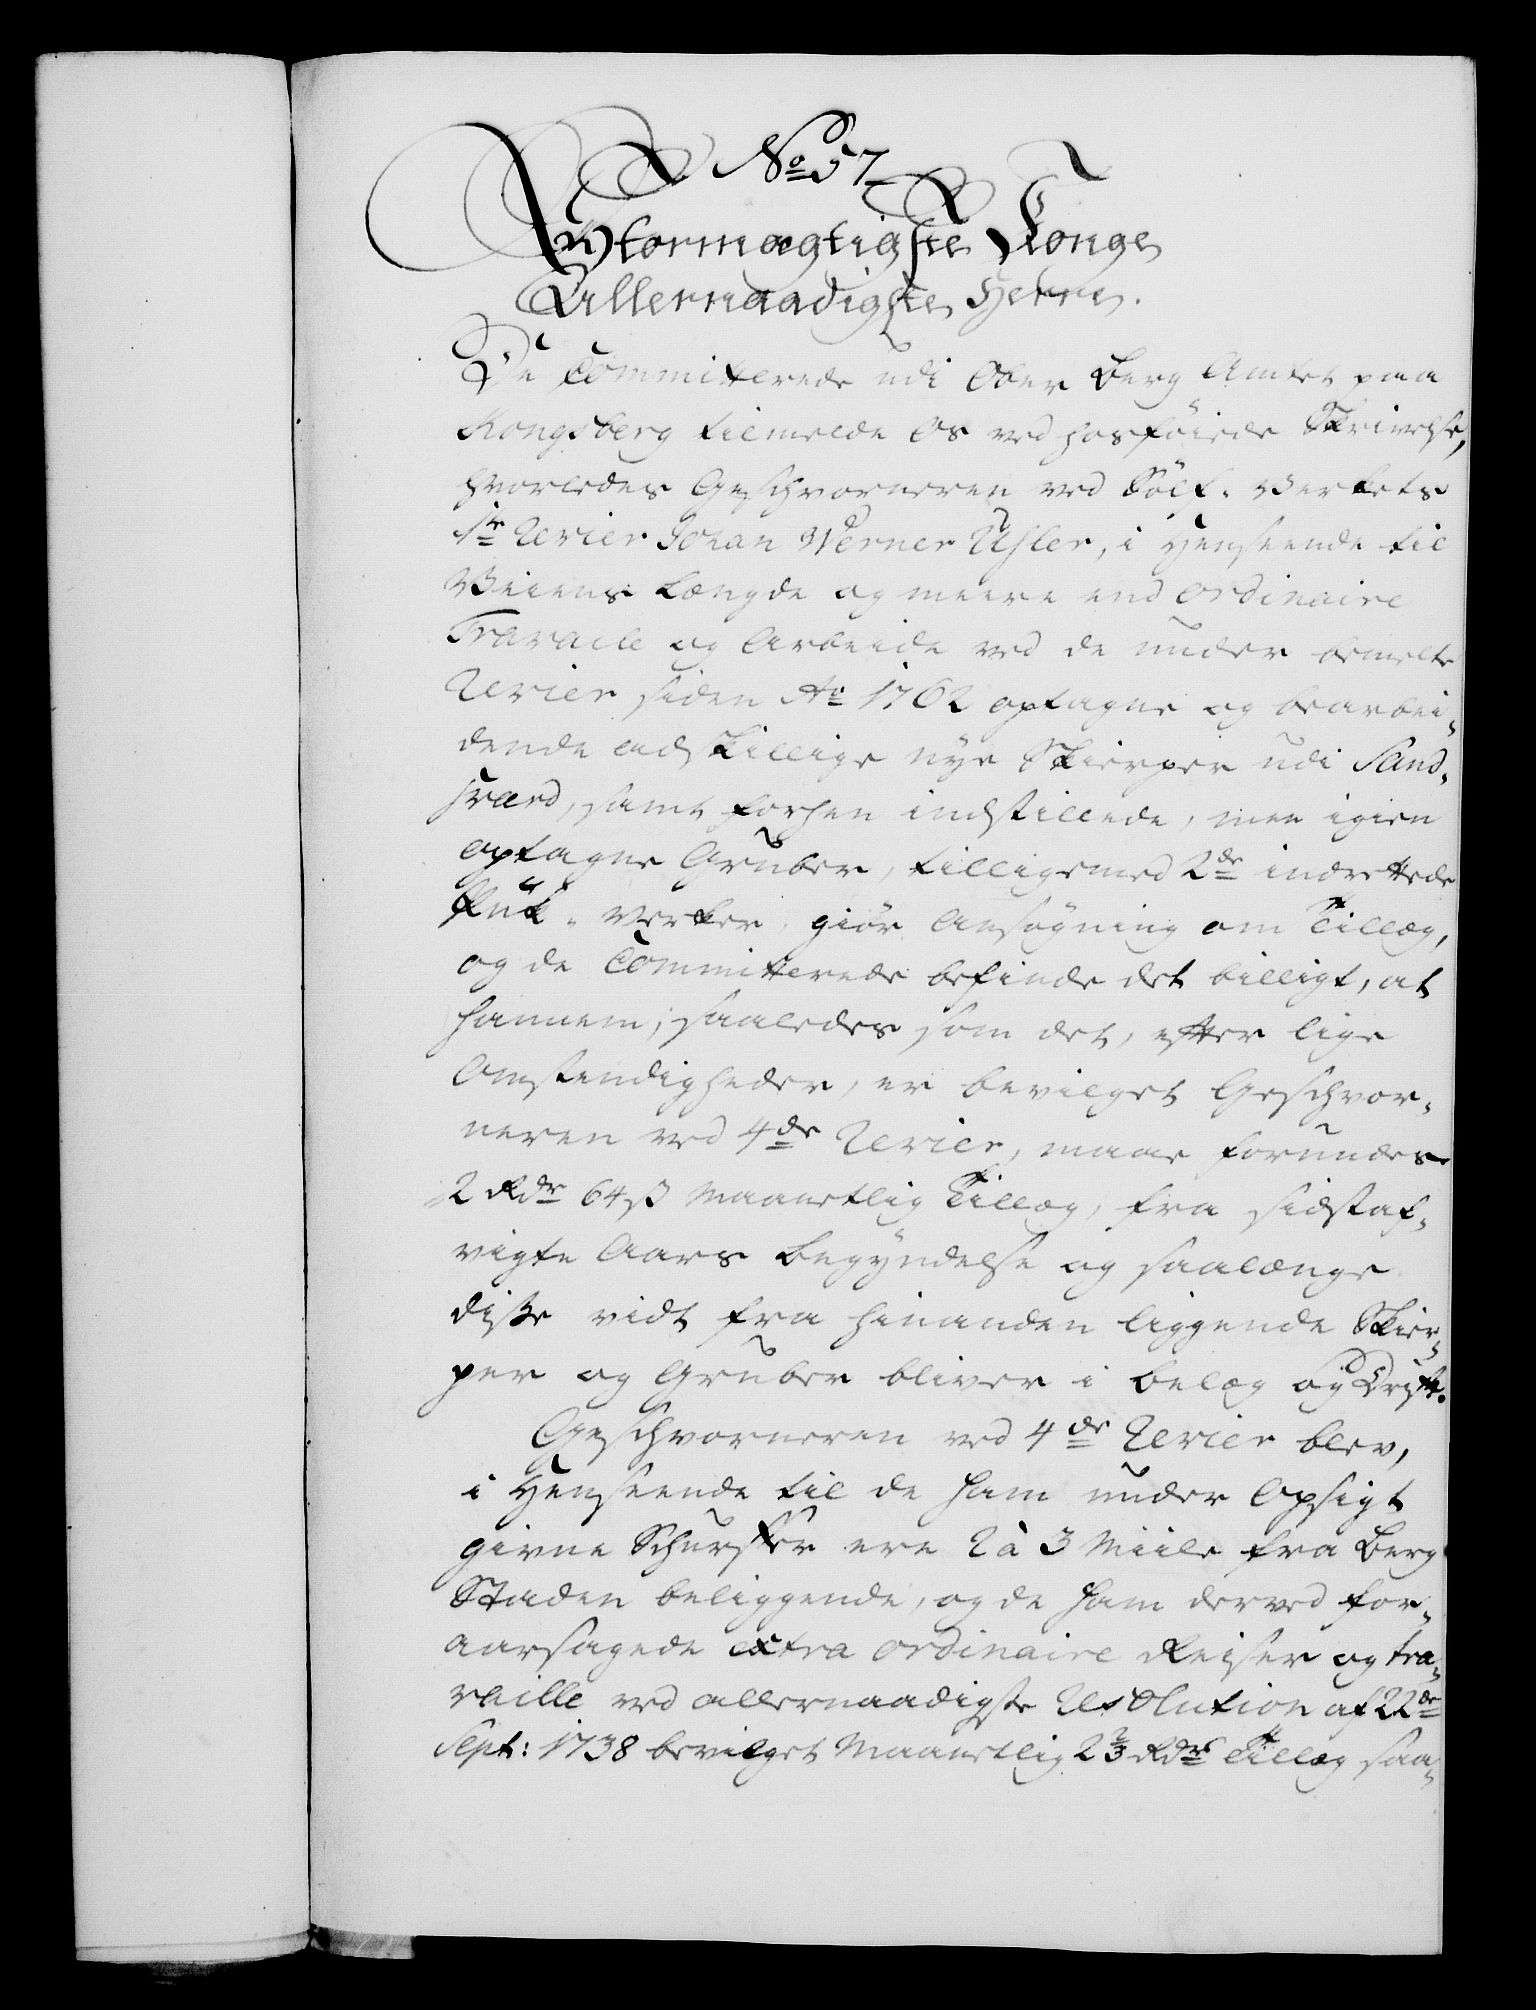 No 57
Stormægtigste Konge
Allernaadigste Herre.
De Committerede udi Ober Berg Amtet paa
Kongsberg tilmelde Os ved hosföiede Skrivelse,
hvorledes Geschworneren ved Sölf-Verkets
1te Revier Johan Werner Usler, i Henseende til
Veiens Længde og meere end ordinaire
Travaile og Arbeide ved de under bemelte
Revier siden Ao 1762 optagne og bearbei-
dende adskillige nye Skierper udi Sand-
sværd, samt forhen indstillede, men igien
optagne Gruber, tilligemed 2de indrettede
Puk-Verker, giör Ansögning om Tillæg,
og de Committerede befinde det billigt, at
hannem, saaledes som det, efter lige
Omstendigheder, er bevilget Geschwor-
neren ved 4de Revier, maae forundes
2 Rdr 64 ß Maanetlig Tillæg, fra sidstaf-
vigte Aars Begyndelse og saalænge
diße vidt fra hinanden liggende Skier-
per og Gruber bliver i Belæg og Drift.
Geschworneren ved 4de Revier blev,
i Henseende til de ham under Opsigt
givne Schurffer ere 2 à 3 Miile fra Berg
Staden beliggende, og de ham derved for-
aarsagede extra ordinaire Reiser og tra-
vaille ved allernaadigste Resolution af 22de
Sept: 1738 bevilget Maanetlig 2 2/3 Rdrs Tillæg saa-